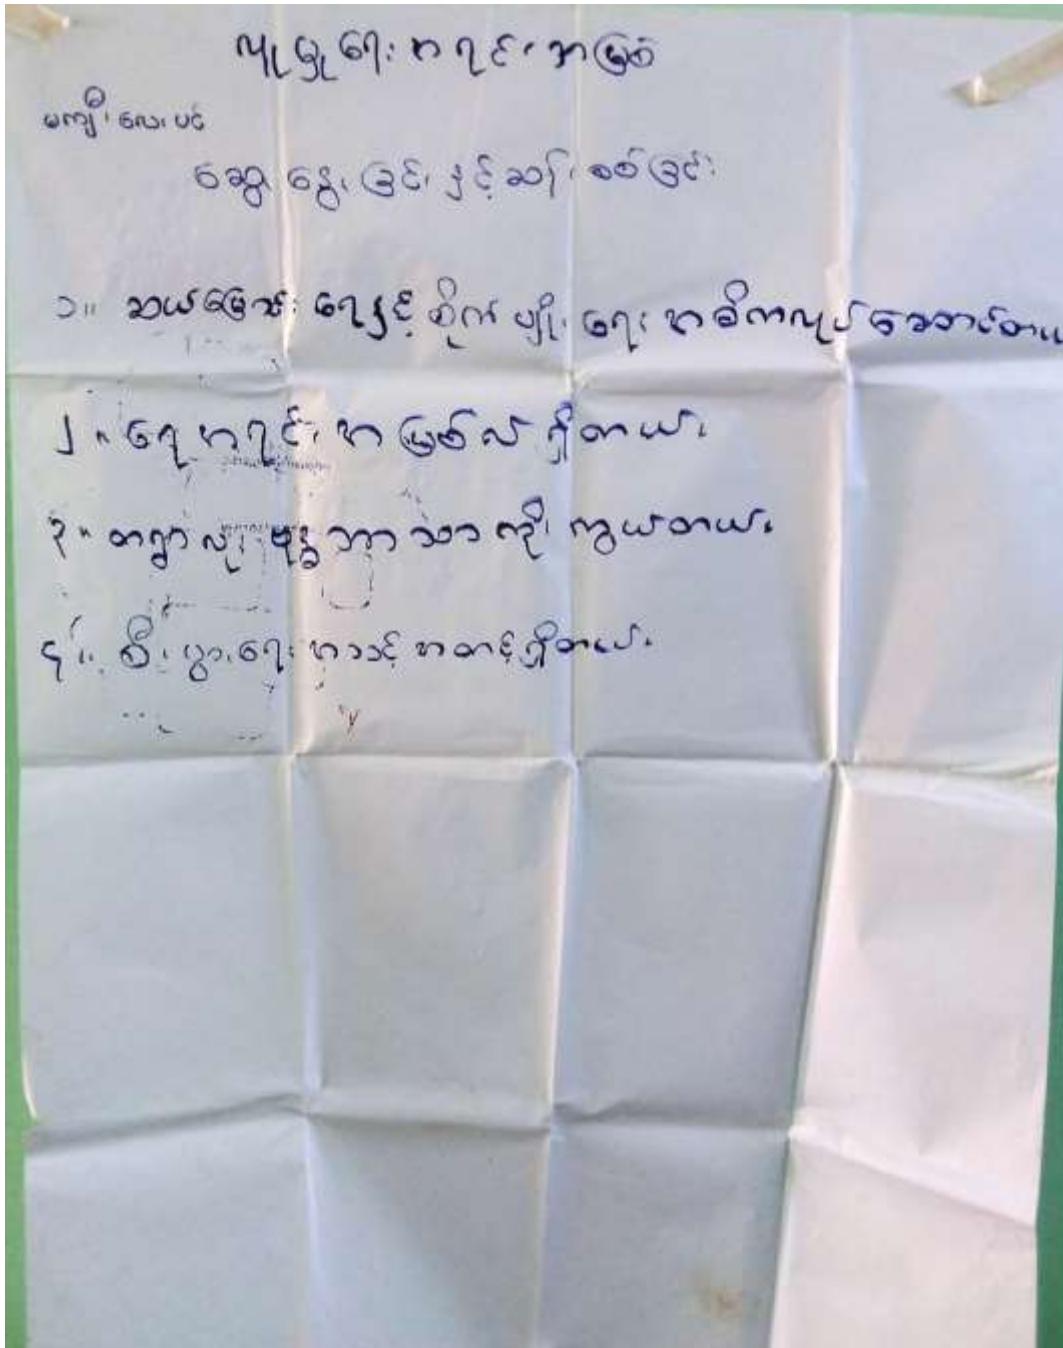 လူမှုရေးအရင်းအမြစ်
မကျီးလေးပင်
ဆွေးနွေးခြင်းနှင့်ဆန်းစစ်ခြင်း
၁။ ဆယ်မြောင်းရေနှင့်စိုက်ပျိုးရေးအဓိကလုပ်ဆောင်တယ်
၂။ ရေအရင်းအမြစ်လဲရှိတယ်။
၃။ တရွာလုံးဗုဒ္ဓဘာသာကိုးကွယ်တယ်။
၄။ စီးပွားရေးအသင့်အတင့်ရှိတယ်။